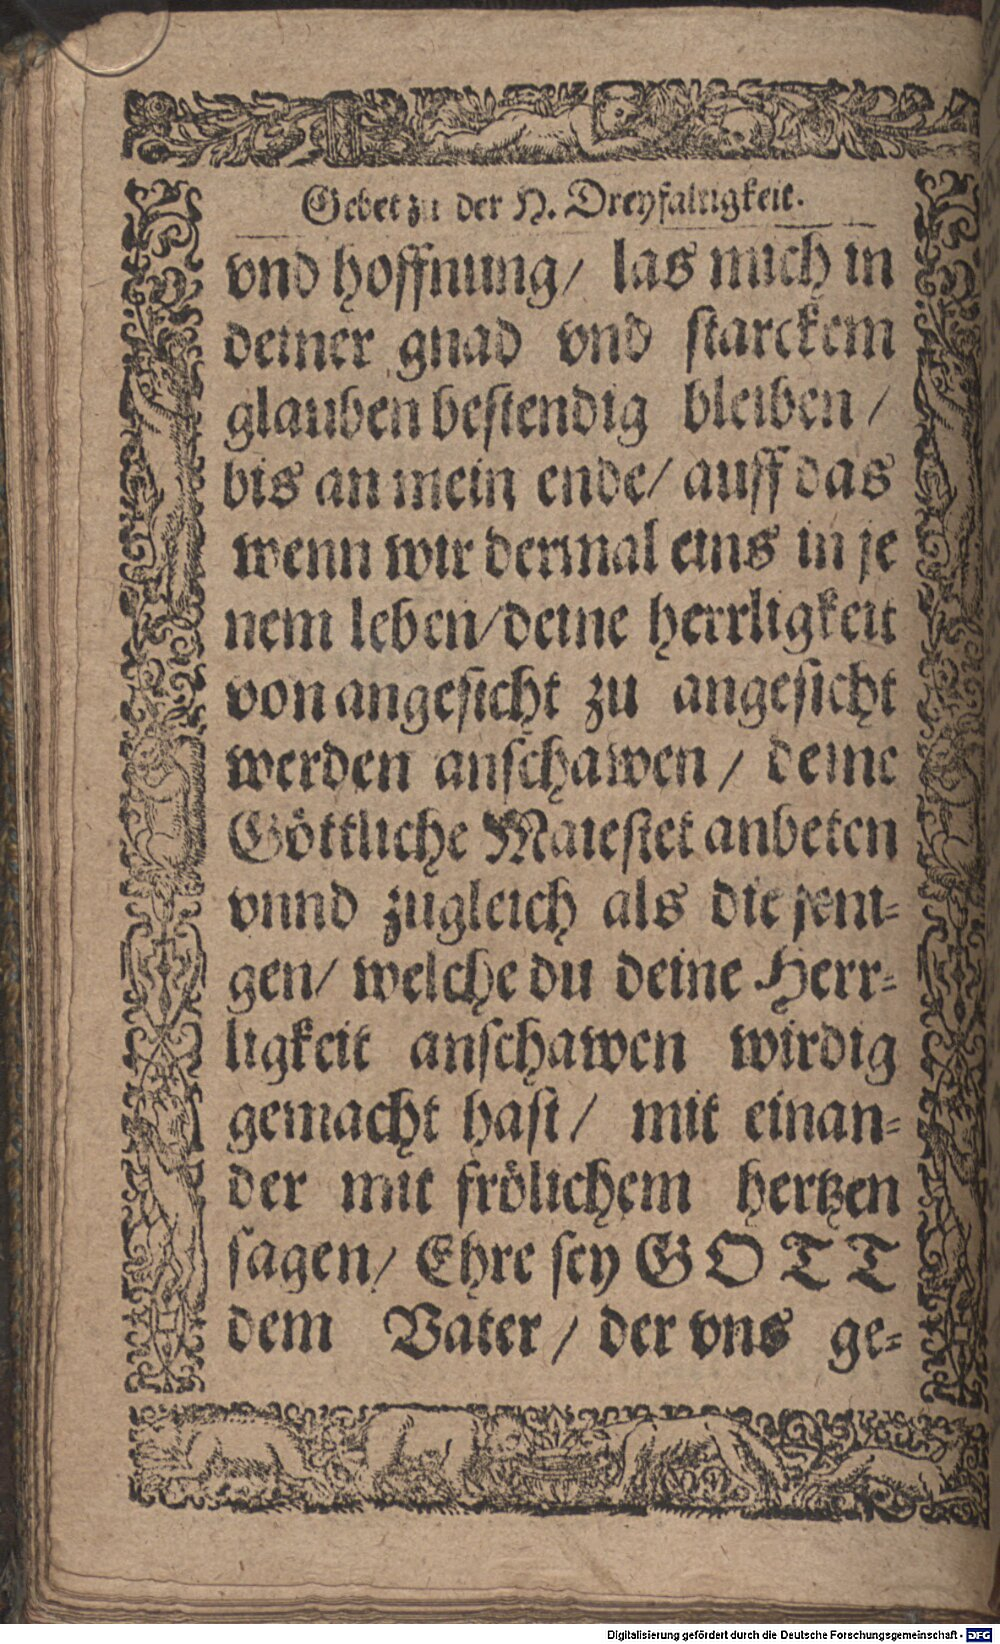 Gebet zu der H. Dreyfaltigkeit.
vnd hoffnung/ las mich in
deiner gnad vnd starckem
glauben bestendig bleiben /
bis an mein ende/ auff das
wenn wir dermal eins in je
nem leben/deine herrligkeit
von angesicht zu angesicht
werden anschawen / deine
Göttliche Maiestet anbeten
vnnd zugleich als die jeni-
gen/ welche du deine Herr-
ligkeit anschawen wirdig
gemacht hast/ mit einan-
der mit frölichem hertzen
sagen/ Ehre sey GOTT
dem Vater / der vns ge-
Digitalisierung gefördert durch die Deutsche Forschungsgemeinschaft - DFG